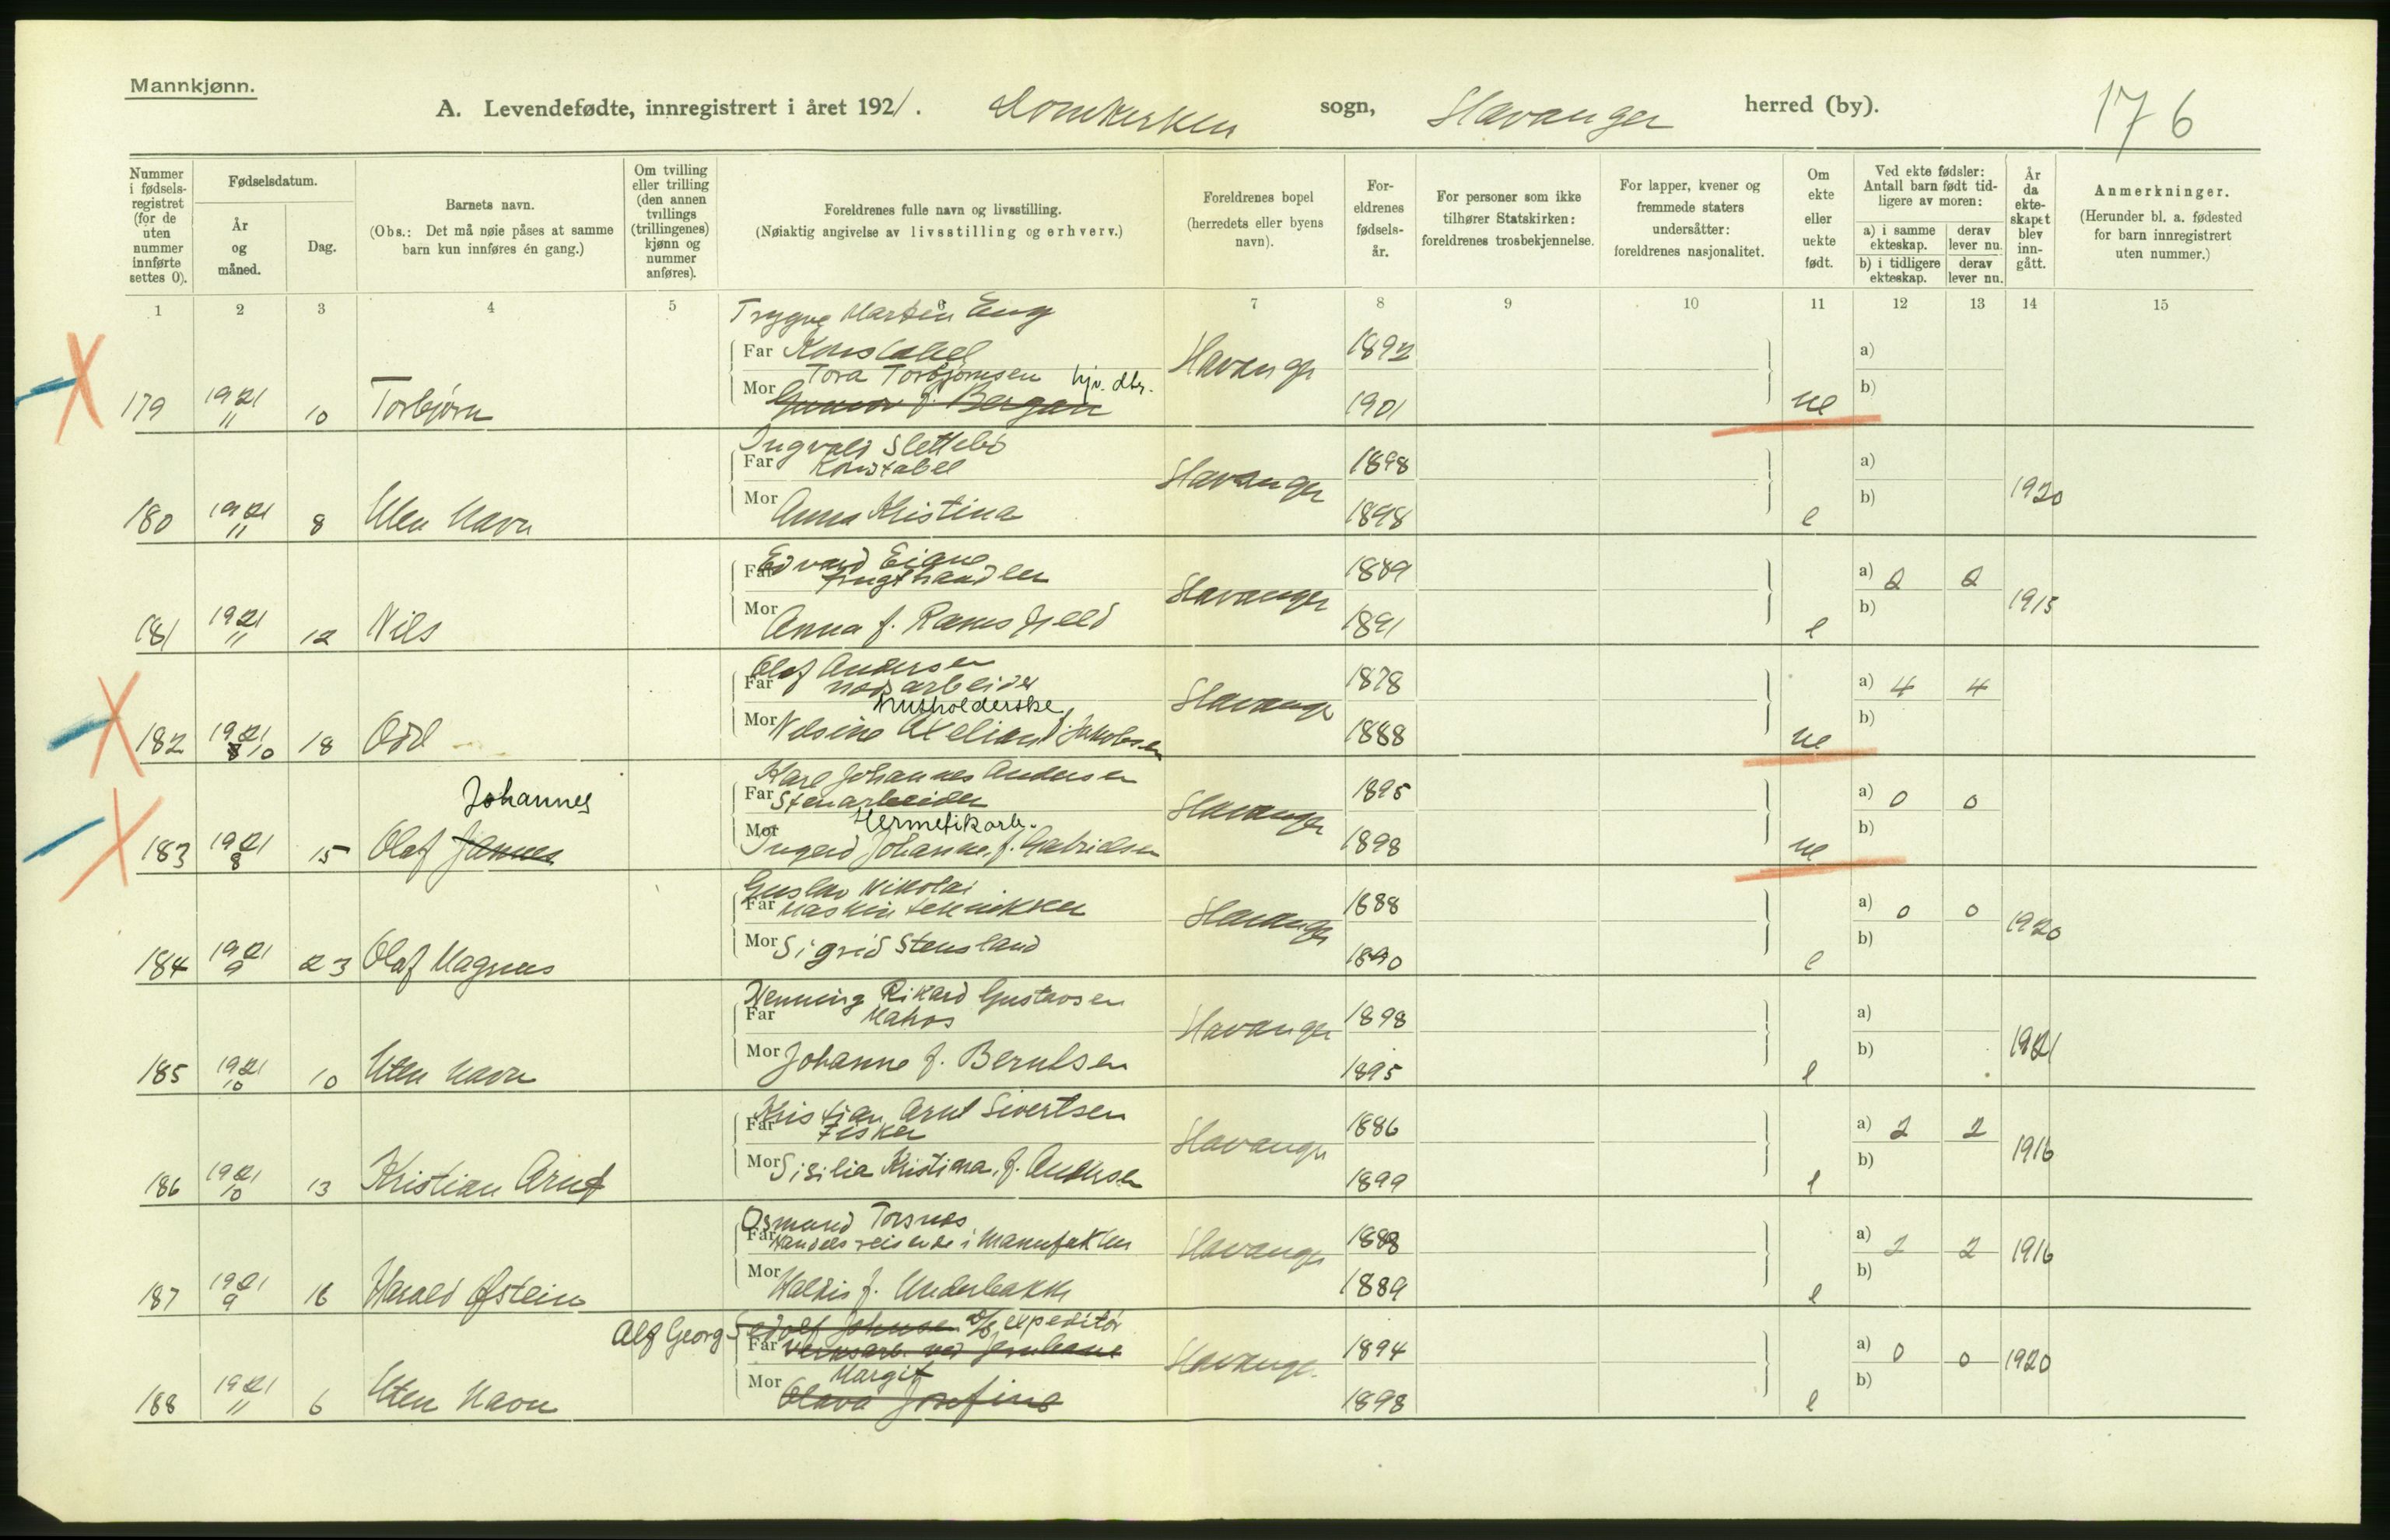 Mannkjønn.
A. Levendefødte, innregistrert i året 1921. Domkirken sogn, Stavanger herred (by). 176
Nummer i fødsels-registret (for de uten nummer innførte settes 0).
Fødselsdatum.
År og måned.
Dag.
Barnets navn.
(Obs.: Det må nøie påses at samme barn kun innføres én gang.)
Om tvilling eller trilling (den annen tvillings (trillingenes) kjønn og nummer anføres).
Foreldrenes fulle navn og livsstilling.
(Nøiaktig angivelse av livsstilling og erhverv.)
Foreldrenes bopel
(herredets eller byens navn).
For-eldrenes fødsels-år.
For personer som ikke tilhører Statskirken: foreldrenes trosbekjennelse.
For lapper, kvener og fremmede staters undersåtter: foreldrenes nasjonalitet.
Om ekte eller uekte født.
Ved ekte fødsler: Antall barn født tid-ligere av moren:
a) i samme ekteskap.
derav lever nu.
b) i tidligere ekteskap.
derav lever nu.
År da ekte-skapet blev inn-gått.
Anmerkninger.
(Herunder bl. a. fødested for barn innregistrert uten nummer.)
1 2 3 4 5 6 7 8 9 10 11 12 13 14 15
Trygve Martin Eng
Far Konstabel Stavanger 1892 a)
Tora Torbjørnsen hjv. dtr.
179 1921 11 10 Torbjørn Mor Gunvor f. Bergan 1901 ue b)
Ingvald Slettebö
Far Konstabel Stavanger 1898 a) 1920
180 1921 11 8 Uten Navn Mor Anna Kristina 1898 e b)
Edvard Eigne
Far frugthandler Stavanger 1889 a) 2 2 1915
181 1921 11 12 Nils Mor Anna f. Ramsfjeld 1891 e b)
Olaf Andersen
Far arbeider Stavanger 1878 a) 4 4
Husholderske
182 1921 8 10 18 Odd Mor f. Jakobsen 1888 ue b)
Karl Johannes Andersen
Johannes Far Stenarbeider Stavanger 1895 a) 0 0
Hermetikarb.
183 1921 8 15 Olaf Mor Ingerd Johanne f. Gabrielsen 1898 ue b)
Gustav Nikolai
Far Maskintekniker Stavanger 1888 a) 0 0 1920
184 1921 9 23 Olaf Magnus Mor Sigrid Stensland 1890 e b)
Henning Rikard Gustavsen
Far Matros Stavanger 1898 a) 1921
185 1921 10 10 Uten navn Mor Johanne f. Berntsen 1895 e b)
Kristian Arnt Sivertsen
Far Fisker Stavanger 1886 a) 2 2 1916
186 1921 10 13 Kristian Arnt Mor Sisilia Kristiana, f. Andersen 1899 e b)
Osmund Torsnes
Far Handelsreisende i Manufaktur Stavanger 1888 a) 2 2 1916
187 1921 9 16 Harald Øistein Mor Haldis f. Underbakke 1889 e b)
Alf Georg Johnsen expeditör
Far Verksarb. ved Jernbane Stavanger 1894 a) 0 0 1920
Margit
188 1921 11 6 Uten Navn Mor Olava Josefine 1898 e b)